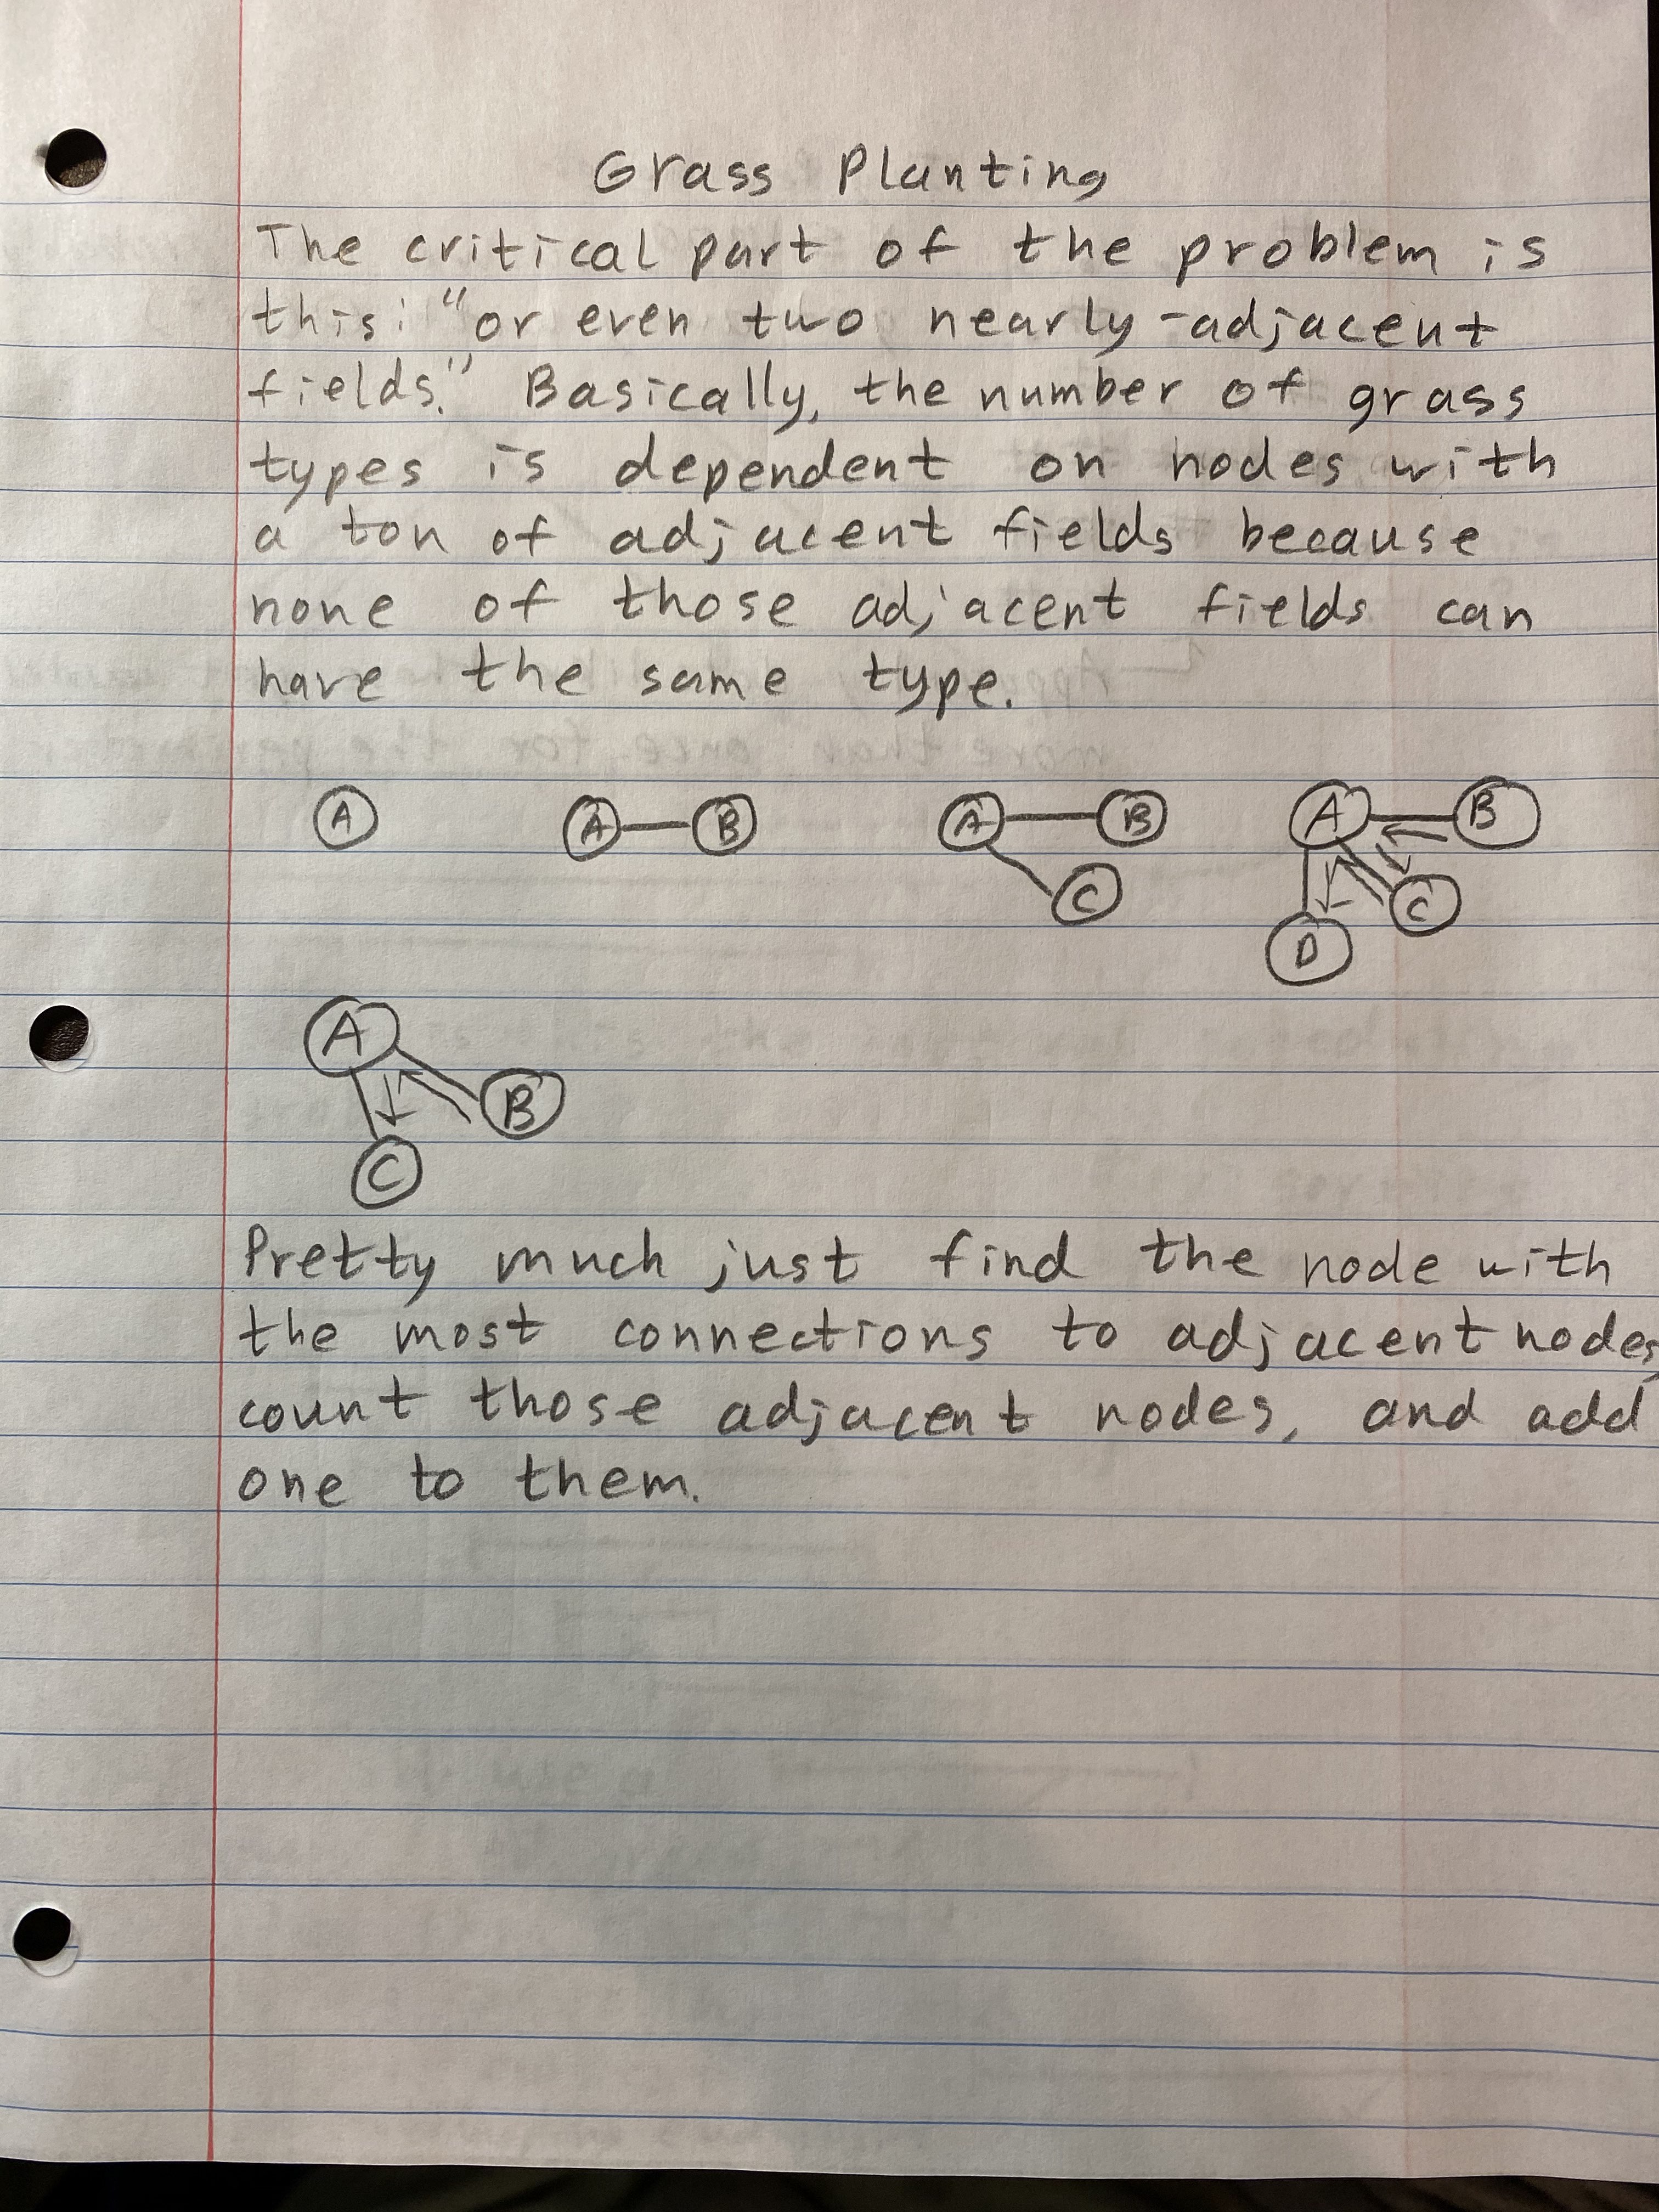 Grass Planting
The critical part of the problem is
this: "or even two nearly-adjacent
fields." Basically, the number of grass
types is dependent on nodes with
a ton of adjacent fields because
none of those adjacent fields can
have the same type.
A A B A B A B
C C
D
A
B
C
Pretty much just find the node with
the most connections to adjacent nodes,
count those adjacent nodes, and add
one to them.